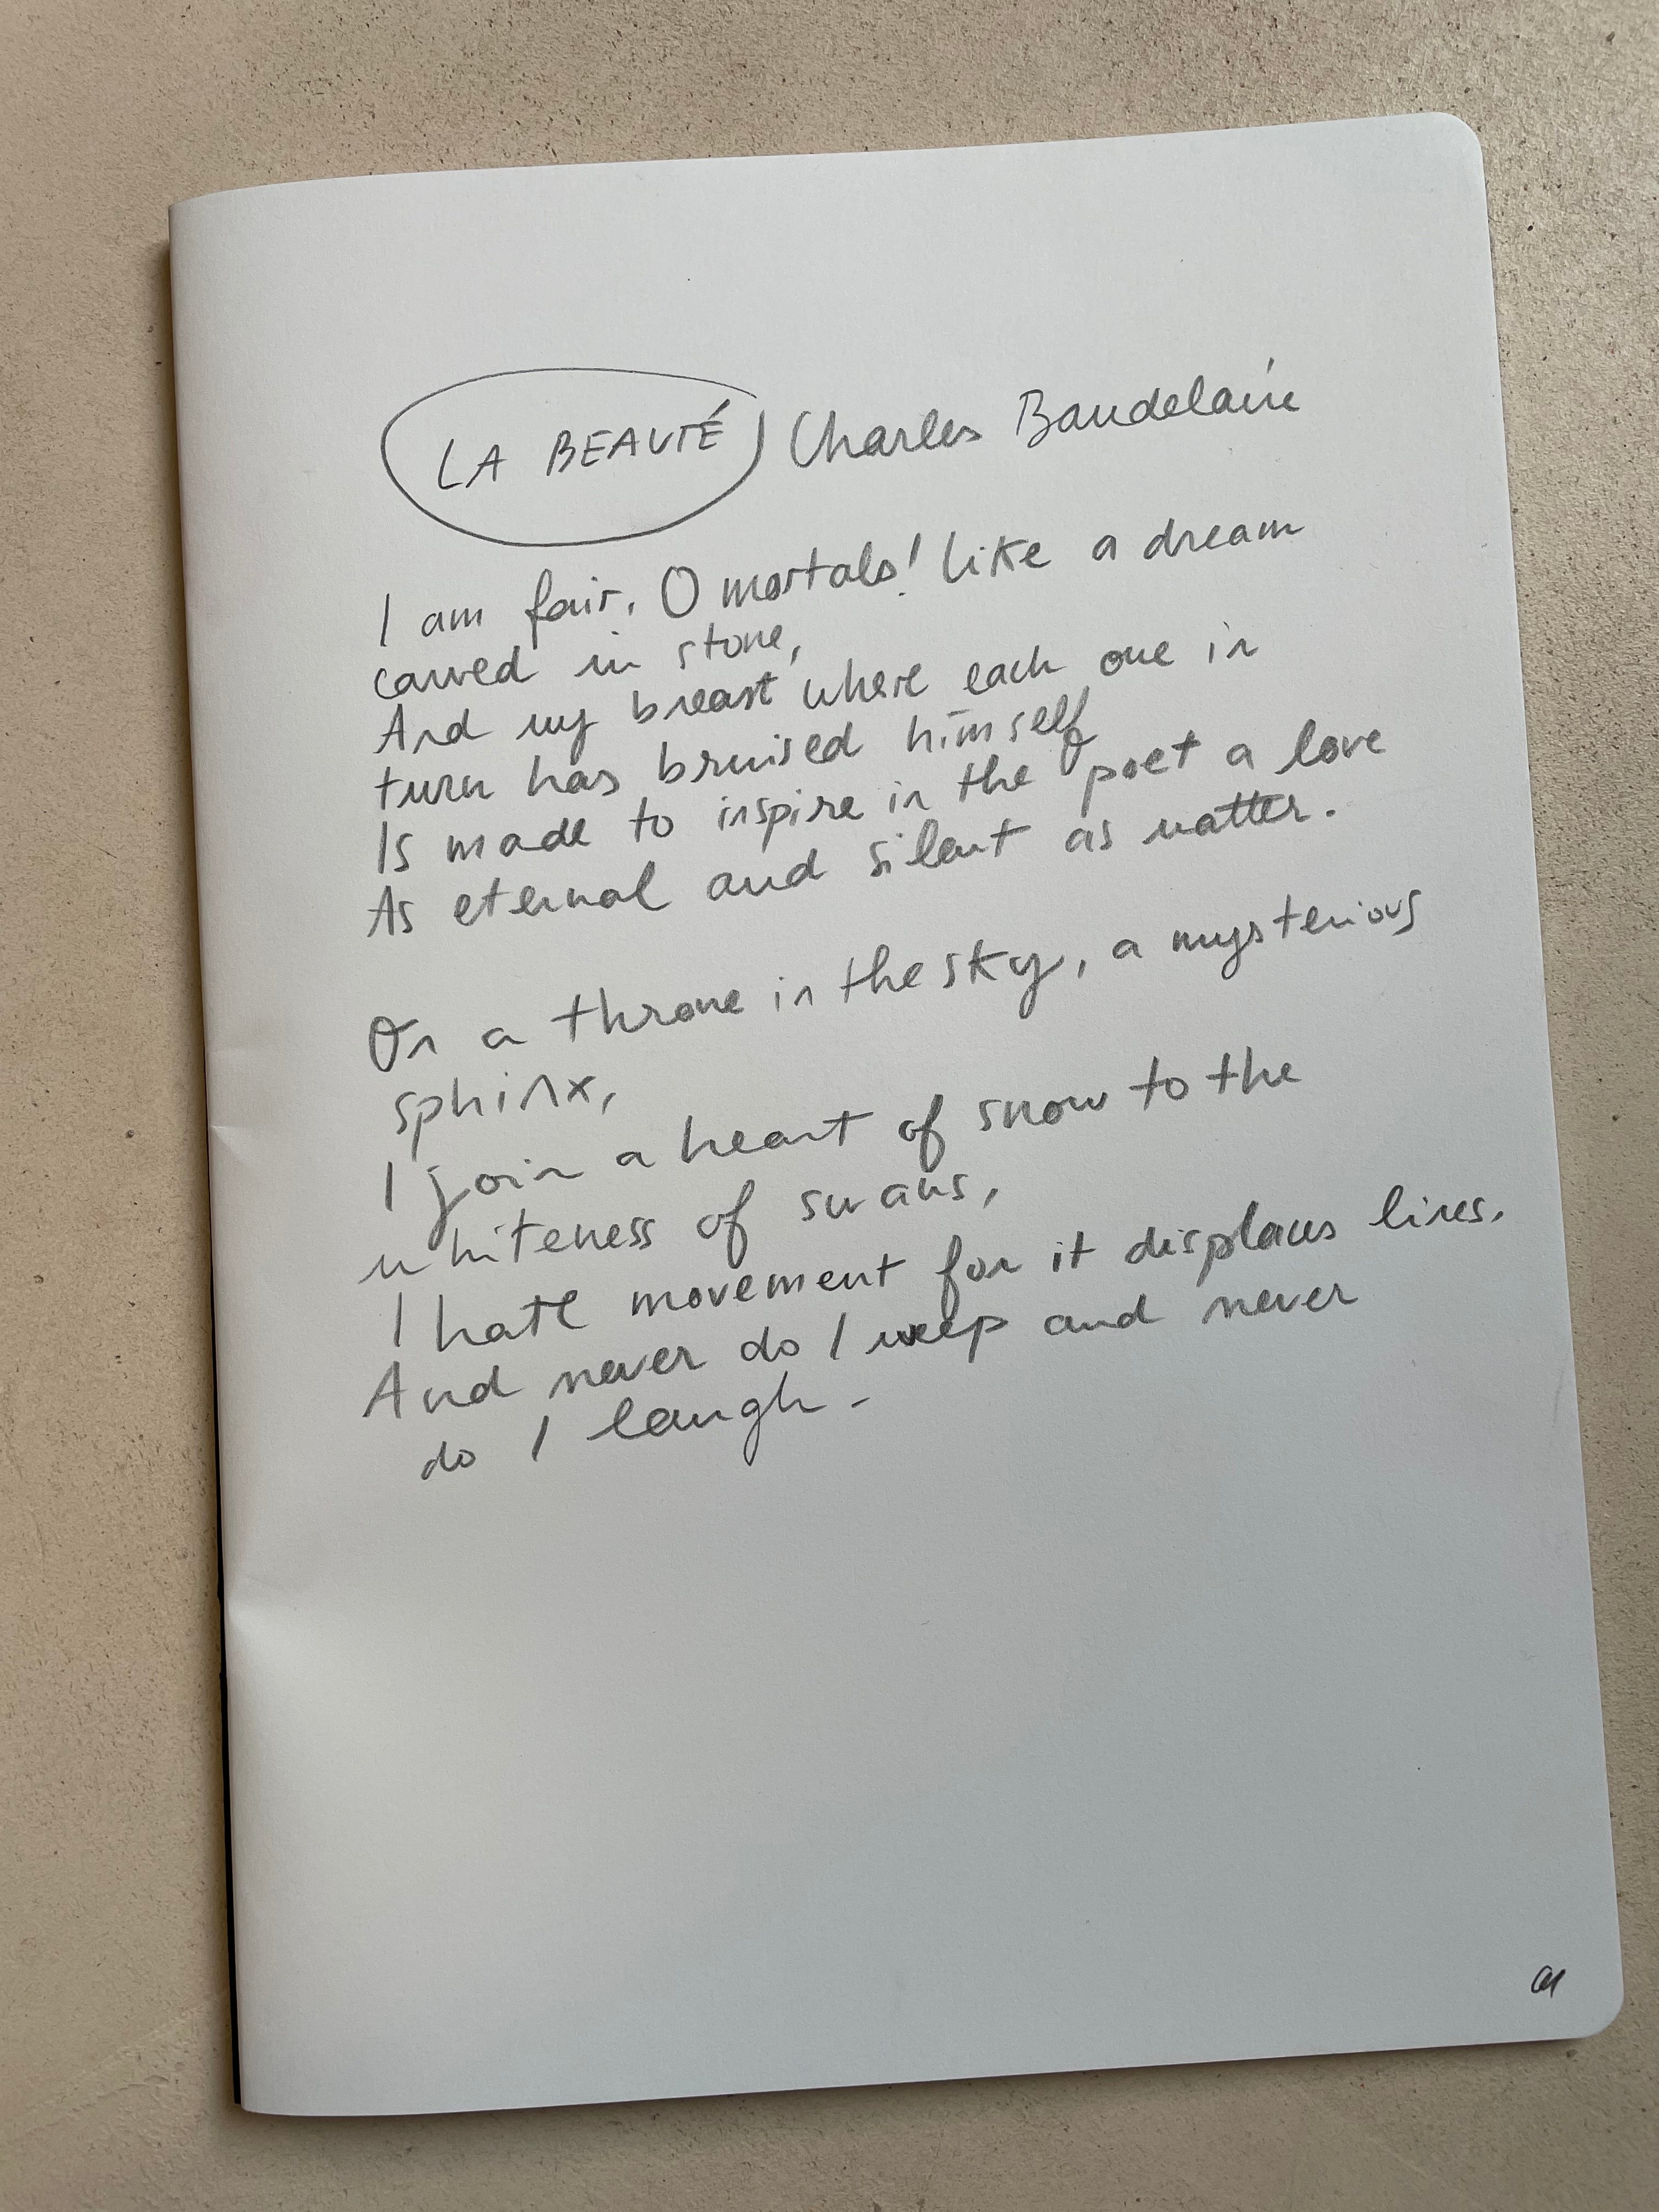 LA BEAUTÉ Charles Baudelaire
I am fair, O mortals! like a dream
carved in stone,
And my breast where each one in
turn has bruised himself
Is made to inspire in the poet a love
As eternal and silent as matter.
On a throne in the sky, a mysterious
sphinx,
I join a heart of snow to the
whiteness of swans,
I hate movement for it displaces lines.
And never do I weep and never
do I laugh.